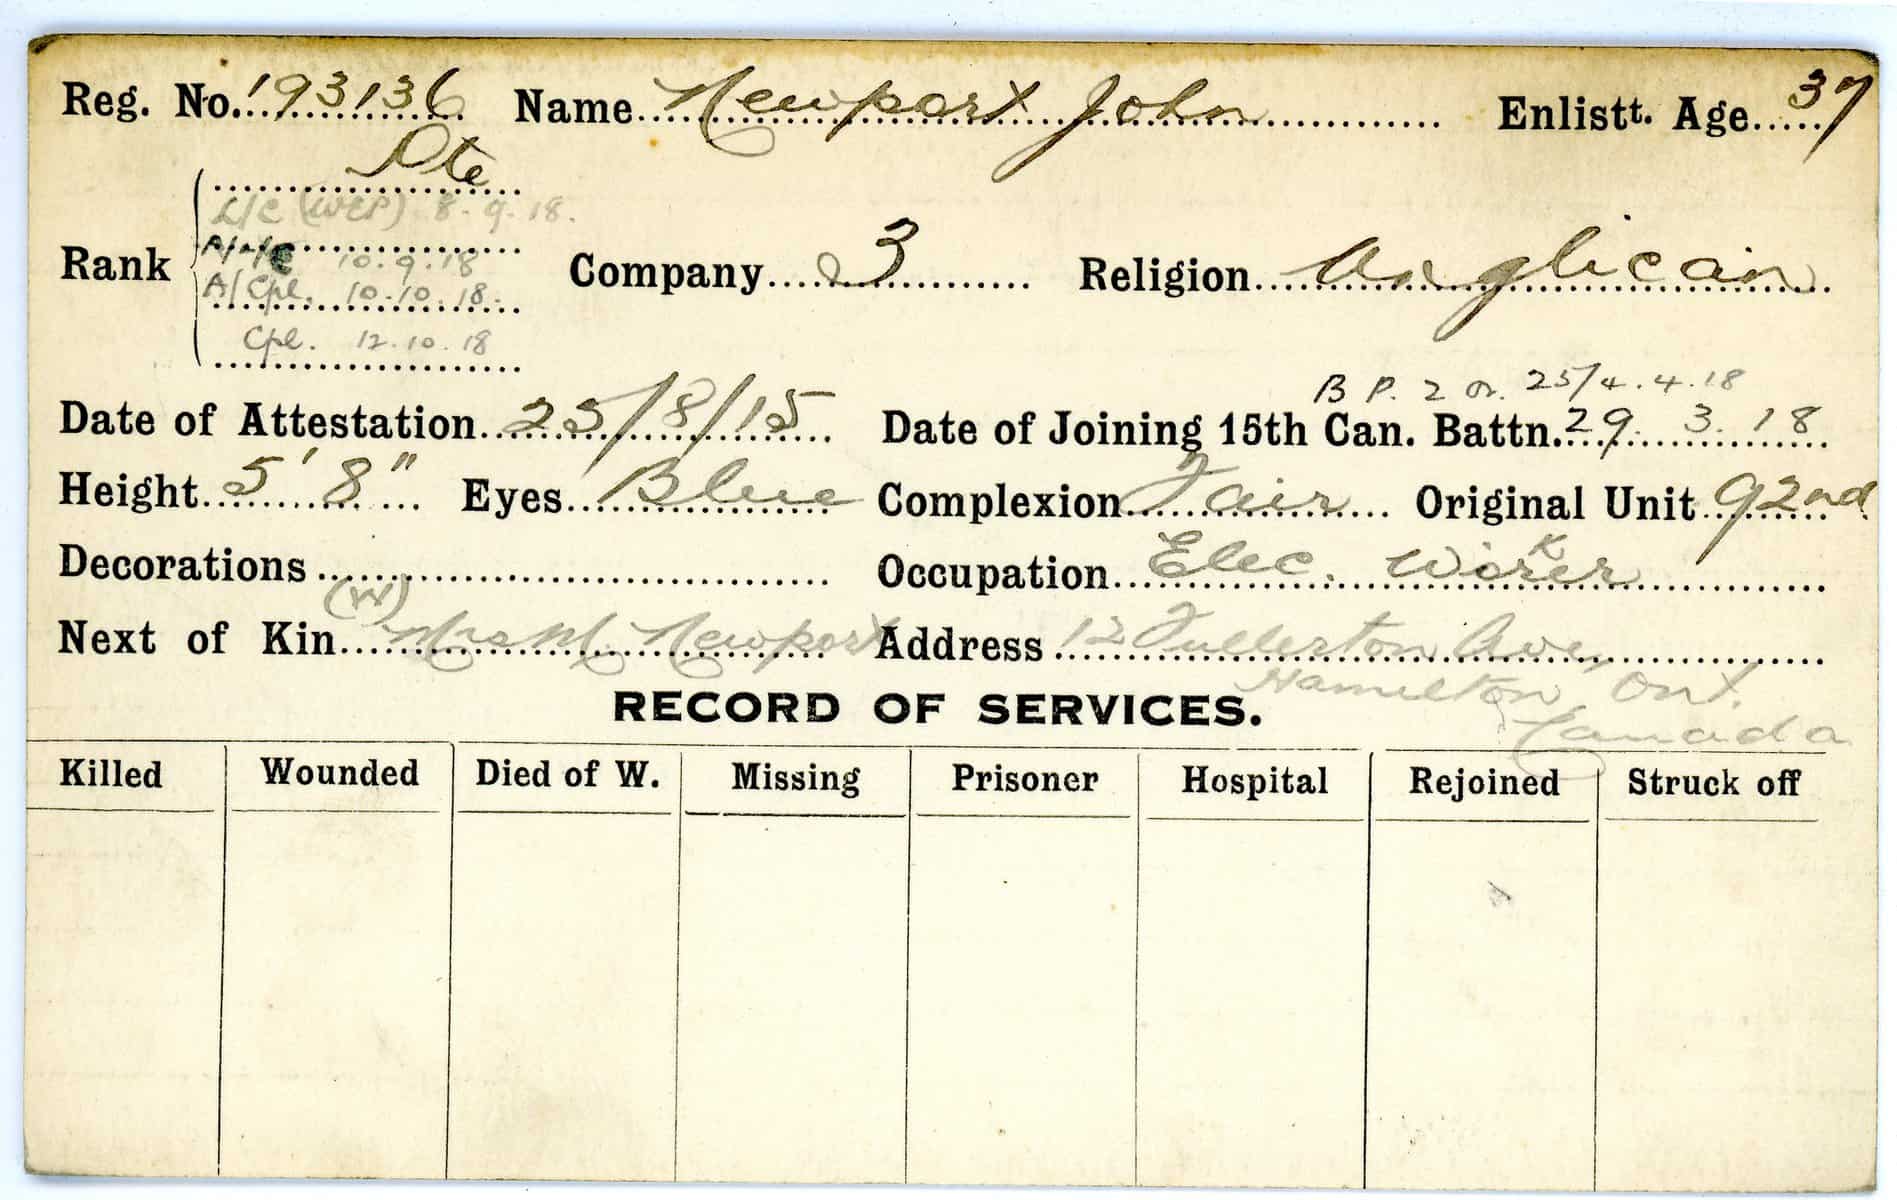 Reg. No. 193136 Name Newport John Enlistt. Age 37
Pte
L/C (WEP) 8.9.18.
10.9.18
Rank Company 3 Religion Anglican
A/Cpl. 10.10.18.
Cpl. 12.10.18
B P. 2 Or. 25/4.4.18
Date of Attestation 25/8/15 Date of Joining 15th Can. Battn. 29.3.18
Height 5' 8" Eyes Blue Complexion Fair Original Unit 92nd
Decorations Occupation Elec. Worker
Next of Kin (W) Mrs M. Newport Address 12 Fullerton Ave,
Hamilton, Ont.
Canada
RECORD OF SERVICES.
Killed Wounded Died of W. Missing Prisoner Hospital Rejoined Struck off